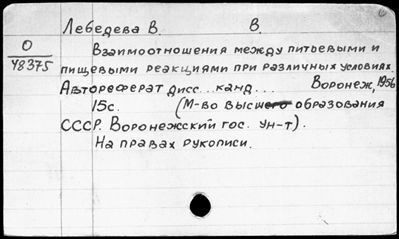 Лебедева В. В.
О
48375
Взаимоотношения между питьевыми и
пищевыми реакциями при различных условиях.
Автореферат дисс... канд... Воронеж, 1956
15с. (М-во высшего образования
СССР. Воронежский гос. ун-т).
На правах рукописи.